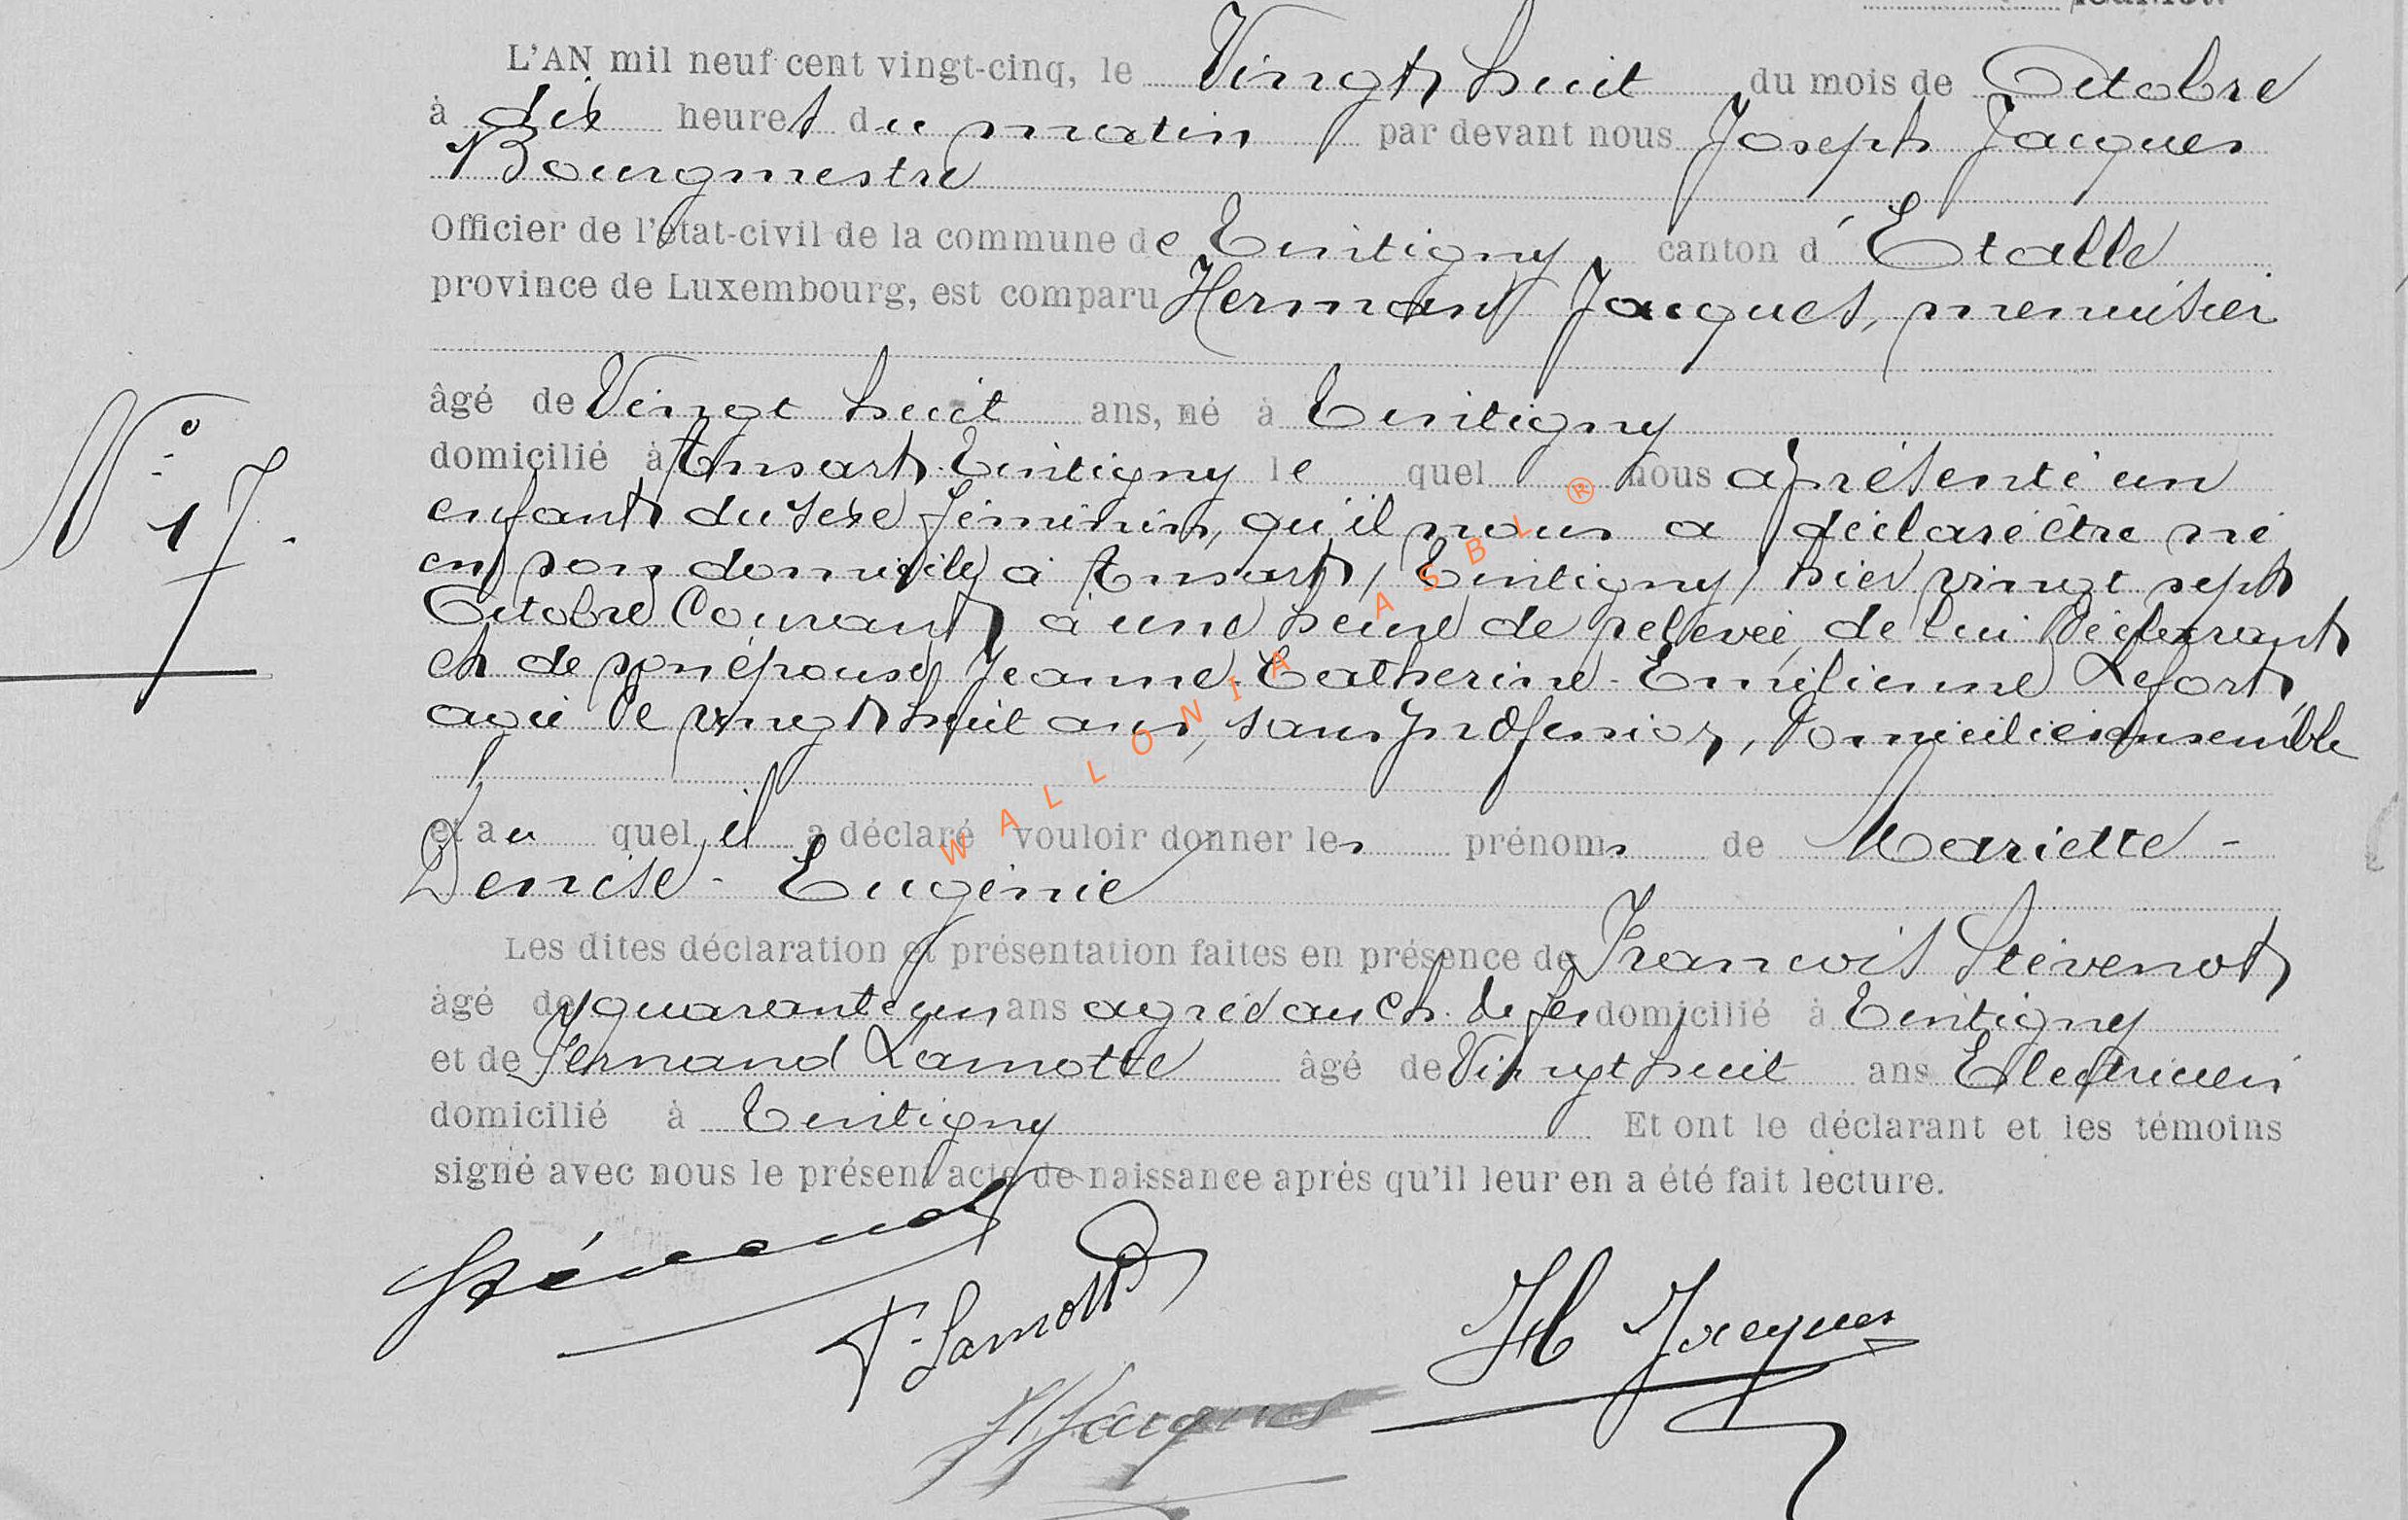 L'AN mil neuf cent vingt-cinq, le Vingt huit du mois de Octobre
à dix heures du matin par devant nous Joseph Jacques
Bourgmestre
Officier de l'état-civil de la commune de Tintigny canton d' Etalle
province de Luxembourg, est comparu Hermant Jacques, menuisier
âgé de Vingt huit ans, né à Tintigny
domicilié à Ansart-Tintigny le quel nous a présenté un
N° 17.
enfant du sexe féminin, qu'il nous a déclaré être né
en son domicile à Ansart, Tintigny, hier vingt sept
Octobre Courant à une heure de relevée, de lui Déclarant
et de son épouse Jeanne-Catherine-Emilienne Lefort,
agée de vingt huit ans, sans profession, Domiciliés ensemble
et au quel il a déclaré vouloir donner les prénoms de Mariette -
Denise - Eugénie
Les dites déclaration et présentation faites en présence de Francois Stévenot
âgé de quarante un ans agréé au ch. de fer domicilié à Tintigny
et de Fernand Lamotte âgé de Vingt huit ans Electricien
domicilié à Tintigny Et ont le déclarant et les témoins
signé avec nous le présent acte de naissance après qu'il leur en a été fait lecture.
Stévenot
F. Lamotte
H Jacques
Jacques
WALLONIA ASBL ®